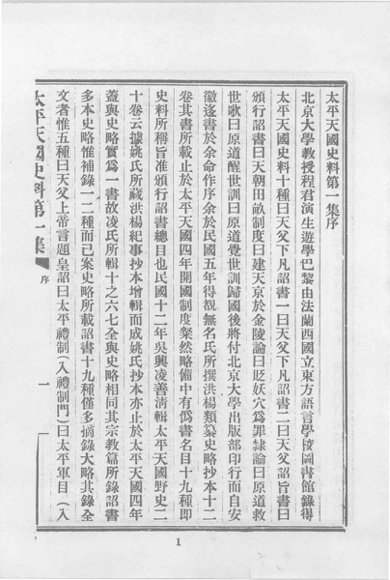 太平天國史料第一集序
北京大學教授程君演生遊學巴黎由法蘭西國立東方語言學校圖書館錄得
太平天國史料十種曰天父下凡詔書一曰天父下凡詔書二曰天父詔旨書曰
頒行詔書曰天朝田畝制度曰建天京於金陵論曰貶妖穴爲罪隸論曰原道救
世歌曰原道醒世訓曰原道覺世訓歸國後將付北京大學出版部印行而自安
徽遂書於余命作序余於民國五年得覩無名氏所撰洪楊類纂史略抄本十二
卷其書所載止於太平天國四年開國制度粲然略備中有僞書名目十九種即
史料所稱旨准頒行詔書總目也民國十二年吳興凌善淸輯太平天國野史二
十卷云據姚氏所藏洪楊紀事抄本增輯而成姚氏抄本亦止於太平天國四年
蓋與史略實爲一書故凌氏所輯十之六七全與史略相同其宗教篇所錄詔書
多本史略惟補錄一二種而已案史略所載詔書十九種僅多摘錄大略其錄全
文者惟五種曰天父上帝言題皇詔曰太平禮制(入禮制門)曰太平軍目(入
太平天國史料第一集
序
一
1